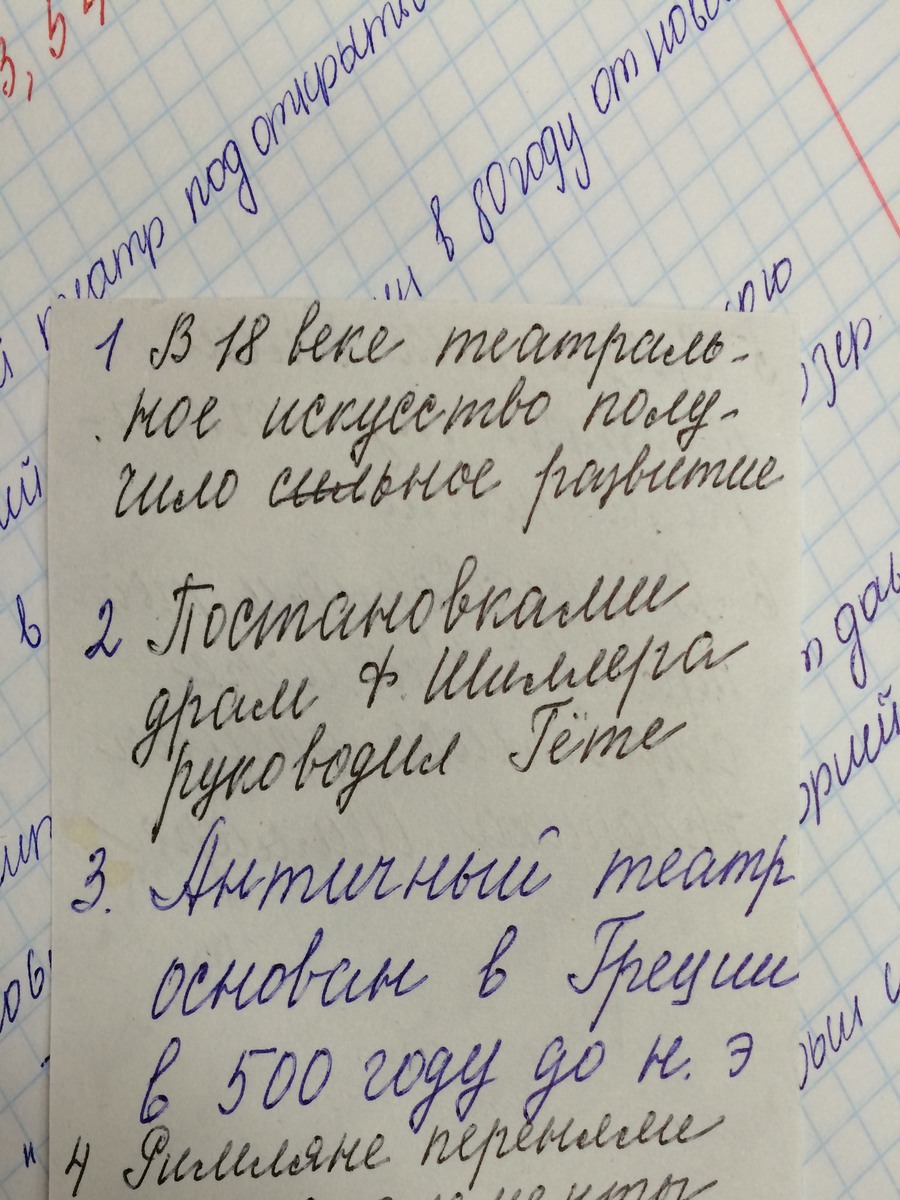 3, 5 4
театр под открыты
в 80 году от
1 В 18 веке театраль-
ное искусство полу-
чило сильное развитие
2 Постановками
драм Ф. Шиллера
руководил Гёте
3. Античный театр
основан в Греции
в 500 году до н. э
4 Римляне переняли
в